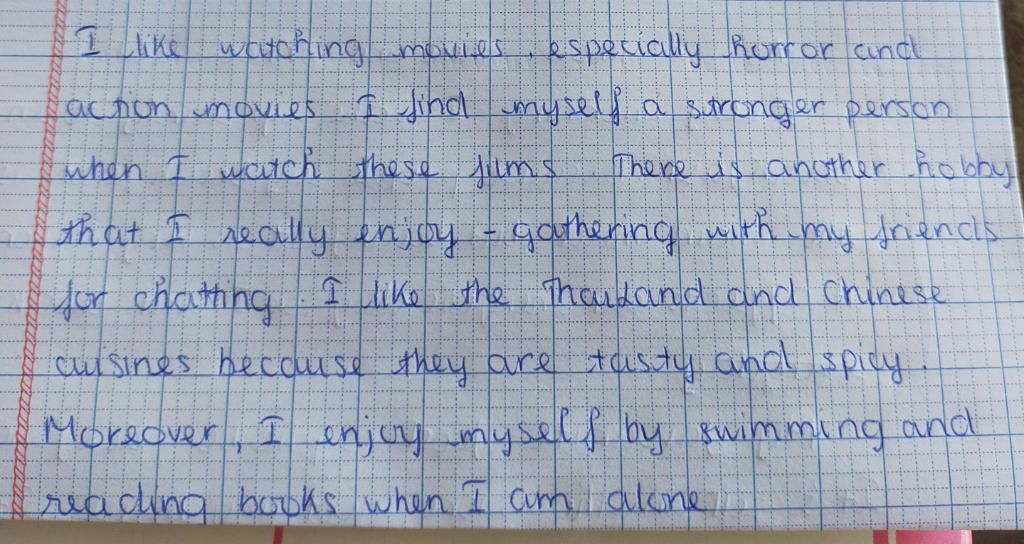 I like watching movies, especially horror and
action movies I find myself a stronger person
when I watch these films. There is another hobby
that I really enjoy - gathering with my friends
for chatting. I like the Thailand and Chinese
cuisines because they are tasty and spicy.
Moreover, I enjoy myself by swimming and
reading books when I am alone